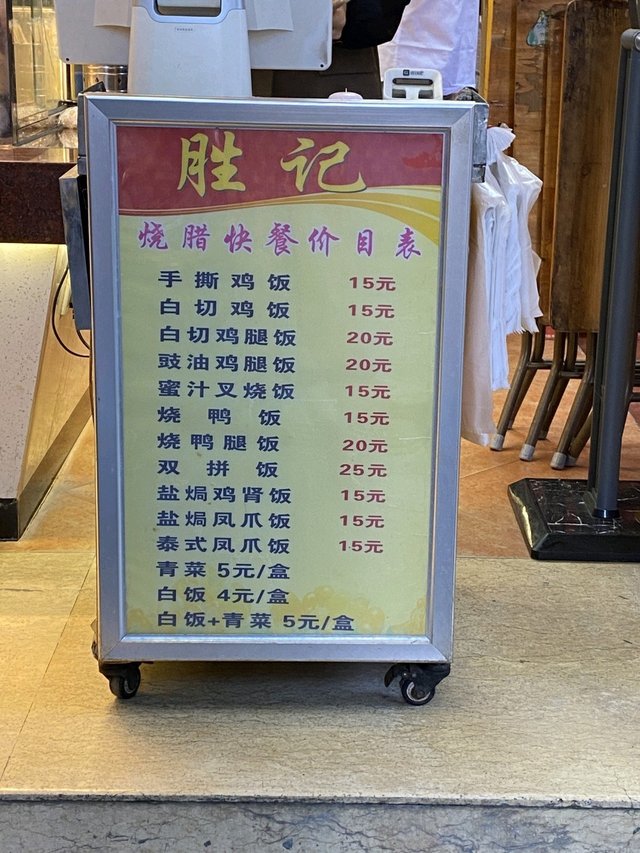 胜记
烧腊快餐价目表
手撕鸡饭 15元
白切鸡饭 15元
白切鸡腿饭 20元
豉油鸡腿饭 20元
蜜汁叉烧饭 15元
烧鸭饭 15元
烧鸭腿饭 20元
双拼饭 25元
盐焗鸡肾饭 15元
盐焗凤爪饭 15元
泰式凤爪饭 15元
青菜 5元/盒
白饭 4元/盒
白饭+青菜 5元/盒